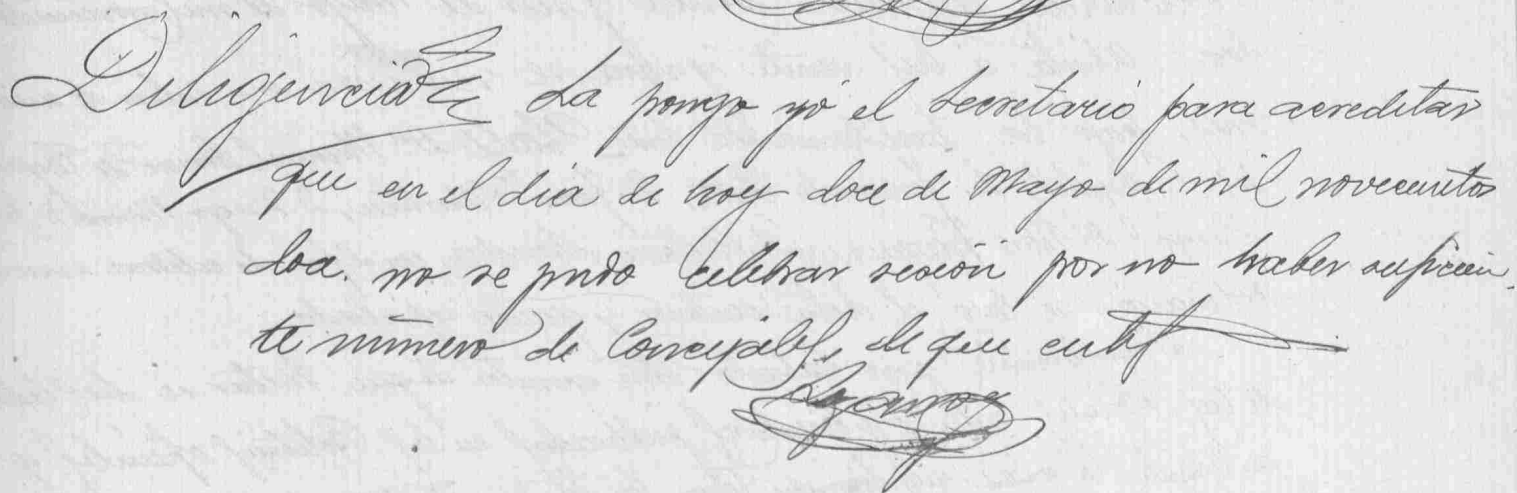 Diligencia La pongo yo el Secretario para acreditar
que en el dia de hoy doce de Mayo de mil novecientos
doce. no se pudo celebrar sesión por no haber suficien
te número de Concejales, de que certif